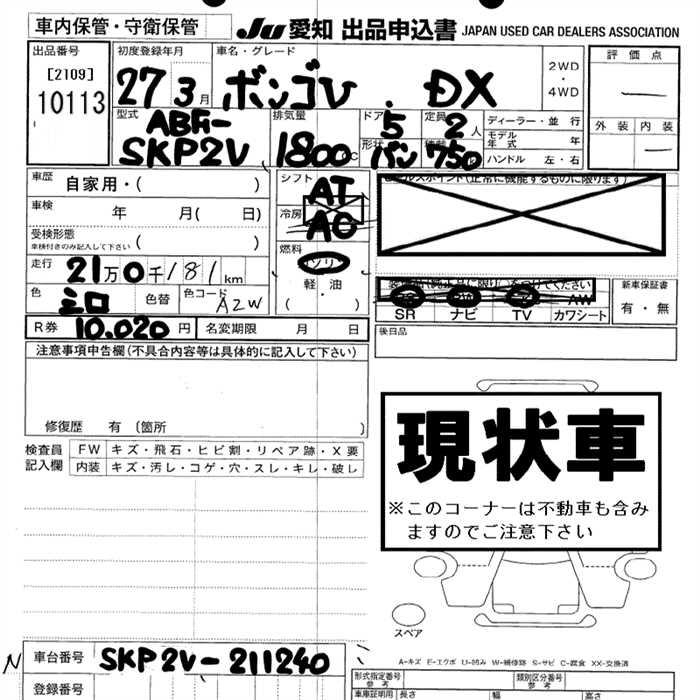 車内保管・守衛保管 JU 愛知 出品申込書 JAPAN USED CAR DEALERS ASSOCIATION
出品番号 初度登録年月 車名・グレード 評価点
[2109]
10113
27 3月 ボンゴV . DX
2WD
・
4WD
型式 排気量 ドア 定員 ディーラー・並行
ABF-
SKP2V 1800 5 2人
モデル
年式 年
外装 内装
形状 バン 750
ハンドル 左・右
車歴 自家用・( )
シフト AT
車検 年 月( 日)
冷房 AC
受検形態
車検付きのみ記入して下さい ( )
燃料
走行 21万0千181km
軽・油
( ・ )
色 シロ 色替 色コード A2W
新車保証書
有・無
SR ナビ TV カワシート
R券 10.020円 名変期限 月 日
後日品
注意事項申告欄(不具合内容等は具体的に記入して下さい)
修復歴 有 〔箇所 〕
検査員
記入欄
FW キズ・飛石・ヒビ割・リペア跡・X要
内装 キズ・汚レ・コゲ・穴・スレ・キレ・破レ
現状車
※このコーナーは不動車も含み
ますのでご注意下さい
スペア
A-キズ E-エクボ U-凹み W-補修跡 S-サビ C-腐食 XX-交換済
N 車台番号 SKP2V-211240
登録番号
形式指定番号
参考
類別区分番号
参考
車庫証明用 長さ 幅 高さ